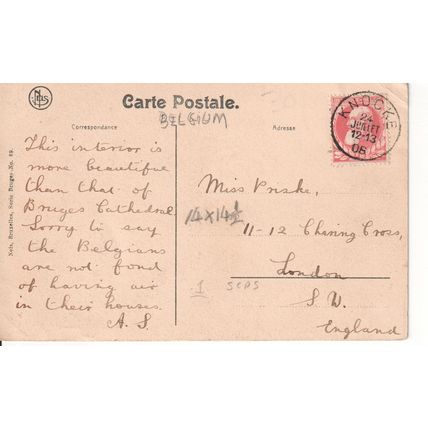 NELS
Carte Postale.
BELGIUM
Correspondance
Adresse
KNOCKE
24
JUILLET
12-13
08
This interior is
more beautiful
than that of
Bruges Cathedral
Sorry to say
the Belgians
are not fond
of having air
in their houses.
A. S.
Miss Priske,
11-12 Charing Cross,
London
S. W.
England
14 x 14½
1
SCPS
Nels, Bruxelles, Serie Bruges - No. 89.